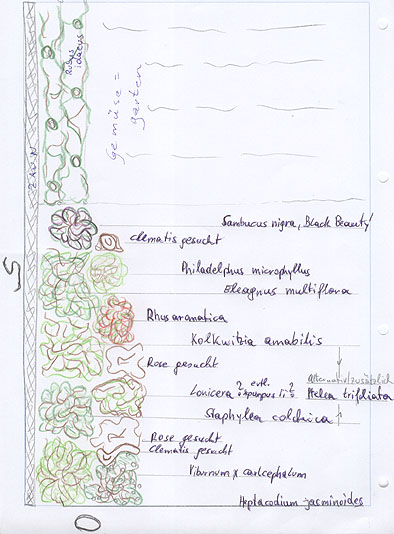 Rubus
idaeus
Gemüse =
garten
ZAUN
Sambucus nigra, Black Beauty'
Clematis gesucht
Philadelphus microphyllus
Eleagnus multiflora
Rhus aromatica
Kolkwitzia amabilis
Rose gesucht
Alternativ/zusätzlich
? evtl. ?
Lonicera purpusii Ptelea trifoliata
Staphylea colchica
Rose gesucht
Clematis gesucht
Viburnum x carlcephalum
Heptacodium jasminoides
S
O